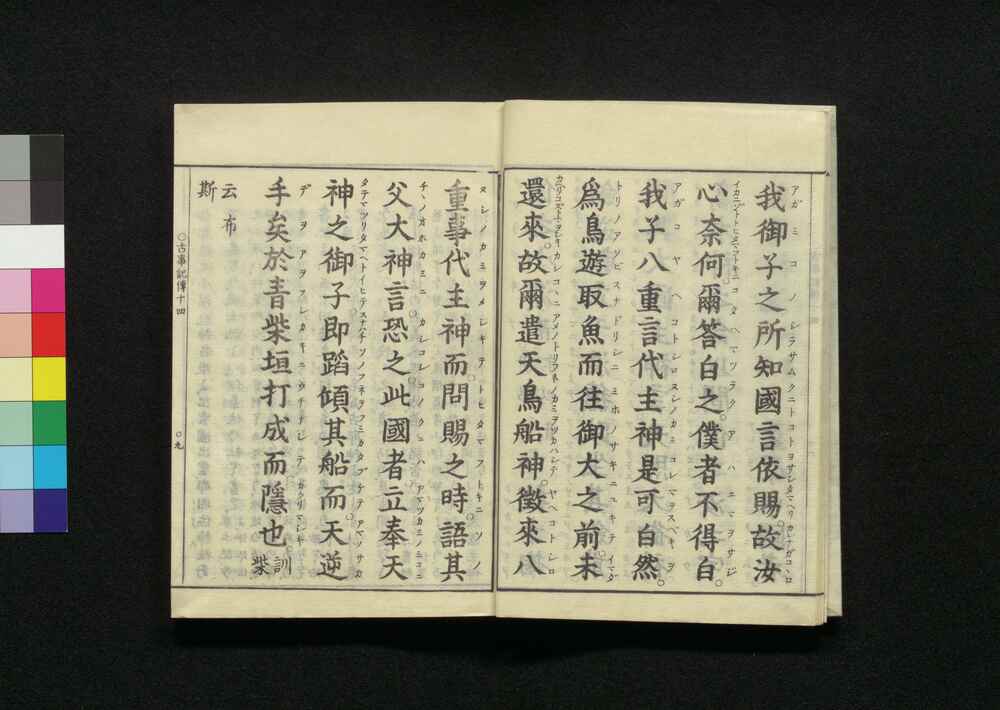 我御子之所知國言依賜。故汝
心奈何爾答白之。僕者不得白。
我子八重言代主神是可白然。
爲鳥遊取魚而往御大之前。未
還來。故爾遣天鳥船神。徵來八
重事代主神而。問賜之時。語其
父大神言。恐之。此國者立奉天
神之御子。即蹈傾其船而。天逆
手矣。於青柴垣打成而隱也。訓柴
云布
斯
○古事記傳十四
○九